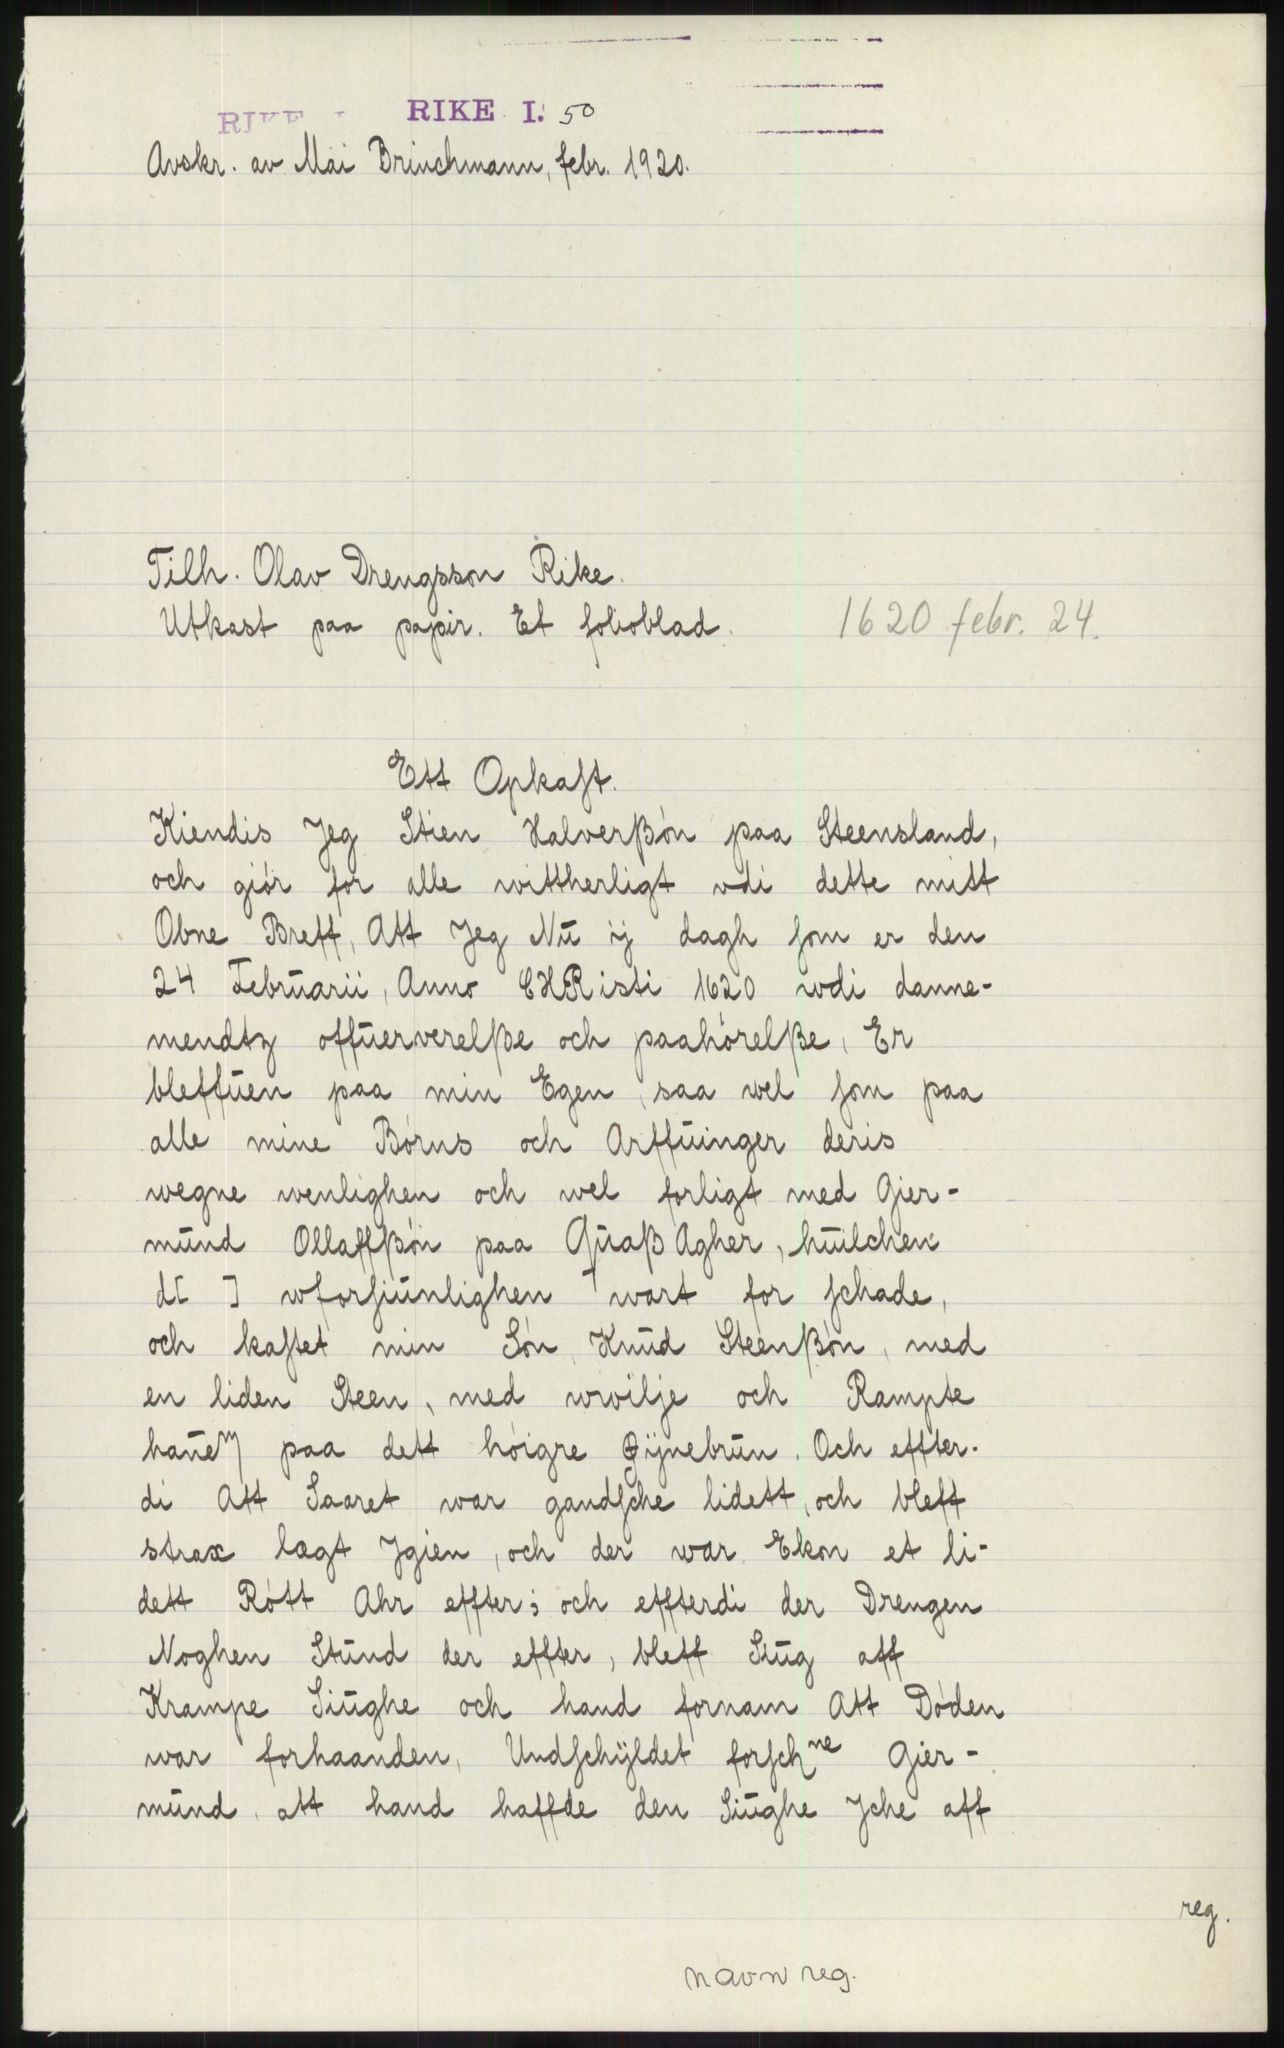 RIKE I. RIKE I. 50
Avskr. av Mai Brinchmann, febr. 1920.
Tilh. Olav Drengsson Rike.
Utkast paa papir. Et folioblad. 1620 febr. 24.
Ett Opkaſt.
Kiendis Jeg Stien Halverßón paa Steensland,
och giór for alle wittherligt vdi dette mitt
Obne Breff, Att Jeg Nū ij dagh ſom er den
24 Febrūarii, Anno CHRisti 1620 wdi danne-
mendtz offūerverelße och paahórelße, Er
bleffūen paa min Egen, saa wel ſom paa
alle mine Bórns och Arffūinger deris
wegne wenlighen och wel forligt med Gier-
mūnd Ollaffßón paa Qūaß Agher, hūilchen
d[ ] wforſiūnlighen wart for ſchade,
och kaſtet min Són, Knūd Steenßón, med
en liden Steen, med wvilje och Rampte
hañem paa dett hóigre Øÿnebrūn. Och effter-
di Att Saaret war gandſche lidett, och bleff
strax lægt Jgien, och der war Ekon et li-
dett Rótt Ahr effter; och effterdi der Drengen
Noghen Stūnd der effter, bleff Siūg aff
Krampe Siūghe och hand fornam Att Dóden
war forhaanden, Undſchÿldet forſchne Gier-
mūnd, att hand haffde den Siūghe Jche aff
reg.
navn reg.